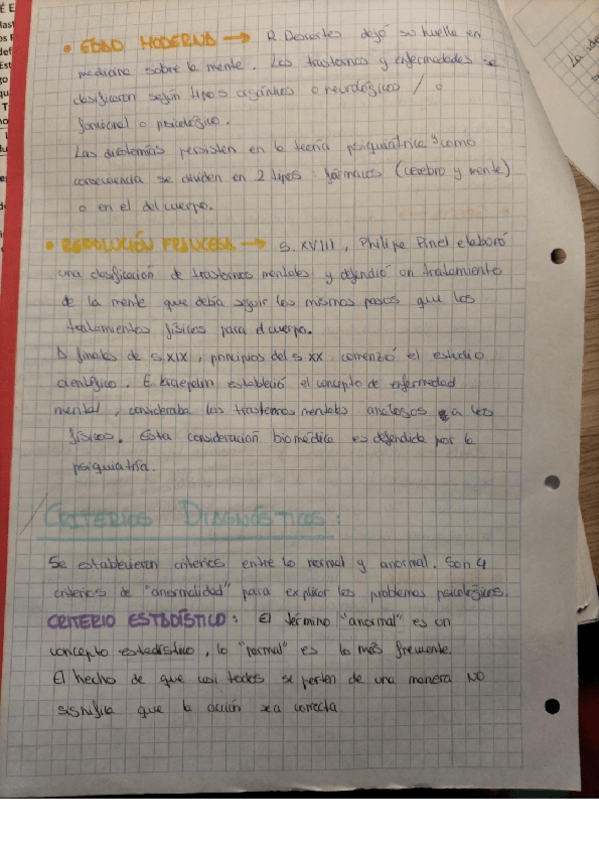 • EDAD MODERNA → R. Descartes dejó su huella en
medicina sobre la mente. Los trastornos y enfermedades se
clasificaron según tipos orgánicos o neurológicos / o
funcional o psicológico.
Las dicotomías persisten en la teoría psiquiátrica y como
consecuencia se dividen en 2 tipos: fármacos (cerebro y mente)
o en el del cuerpo.
• REVOLUCIÓN FRANCESA → S. XVIII, Philipe Pinel elaboró
una clasificación de trastornos mentales y defendió un tratamiento
de la mente que debía seguir los mismos pasos que los
tratamientos físicos para el cuerpo.
A finales de S.XIX, principios del S.XX comenzó el estudio
científico. E. Kraepelin estableció el concepto de enfermedad
mental, consideraba los trastornos mentales análogos a los
físicos. Esta consideración biomédica es defendida por la
psiquiatría.
CRITERIOS DIAGNÓSTICOS:
Se establecieron criterios entre lo normal y anormal. Son 4
criterios de "anormalidad" para explicar los problemas psicológicos.
CRITERIO ESTADÍSTICO: El término "anormal" es un
concepto estadístico, lo "normal" es lo más frecuente.
El hecho de que casi todos se porten de una manera NO
significa que la acción sea correcta